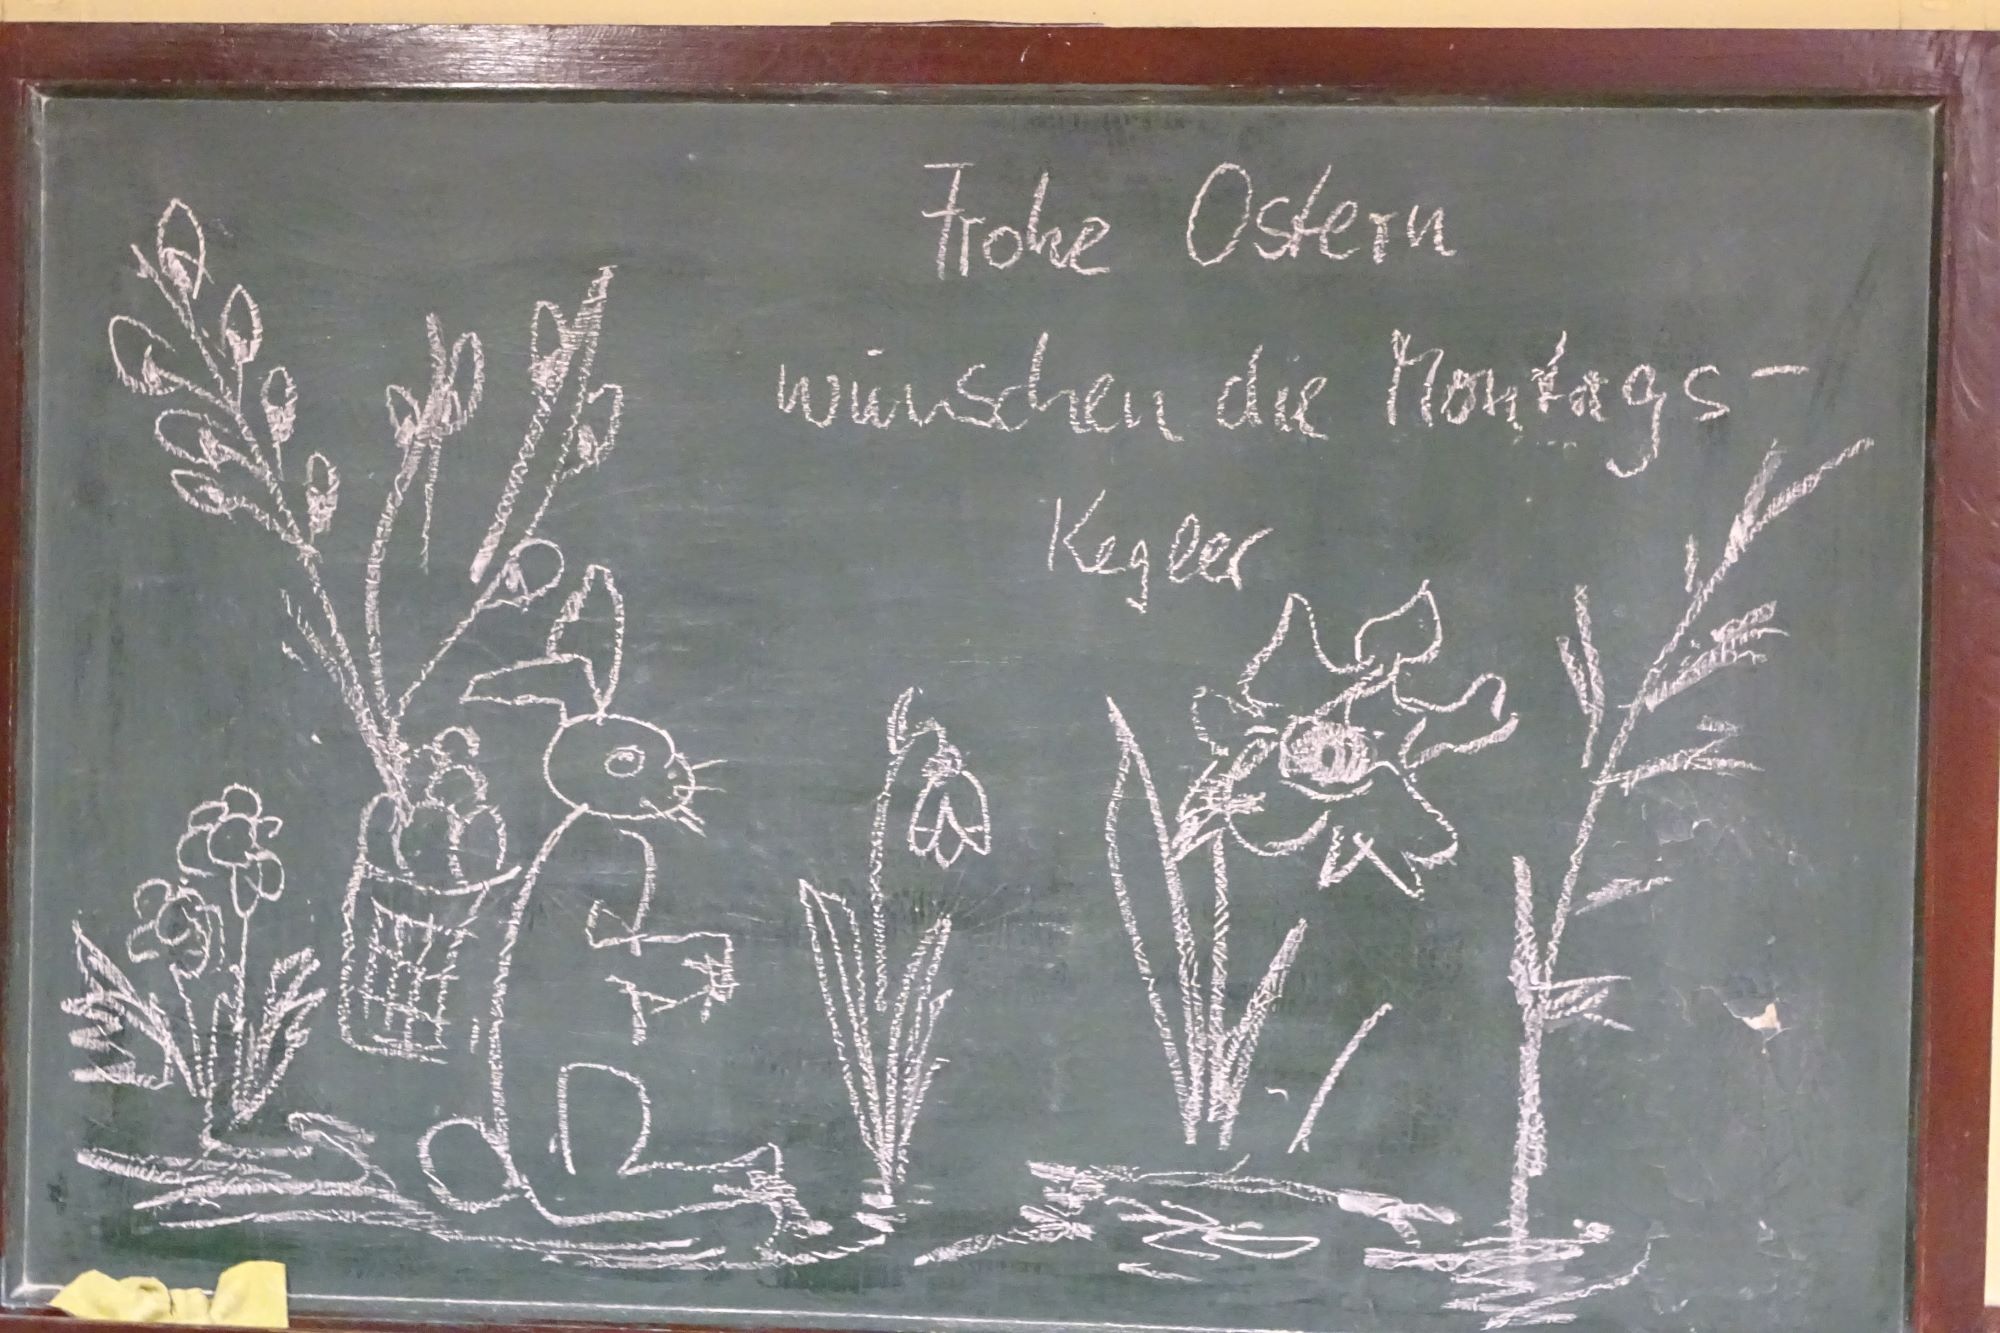 Frohe Ostern
wünschen die Montags-
Kegler